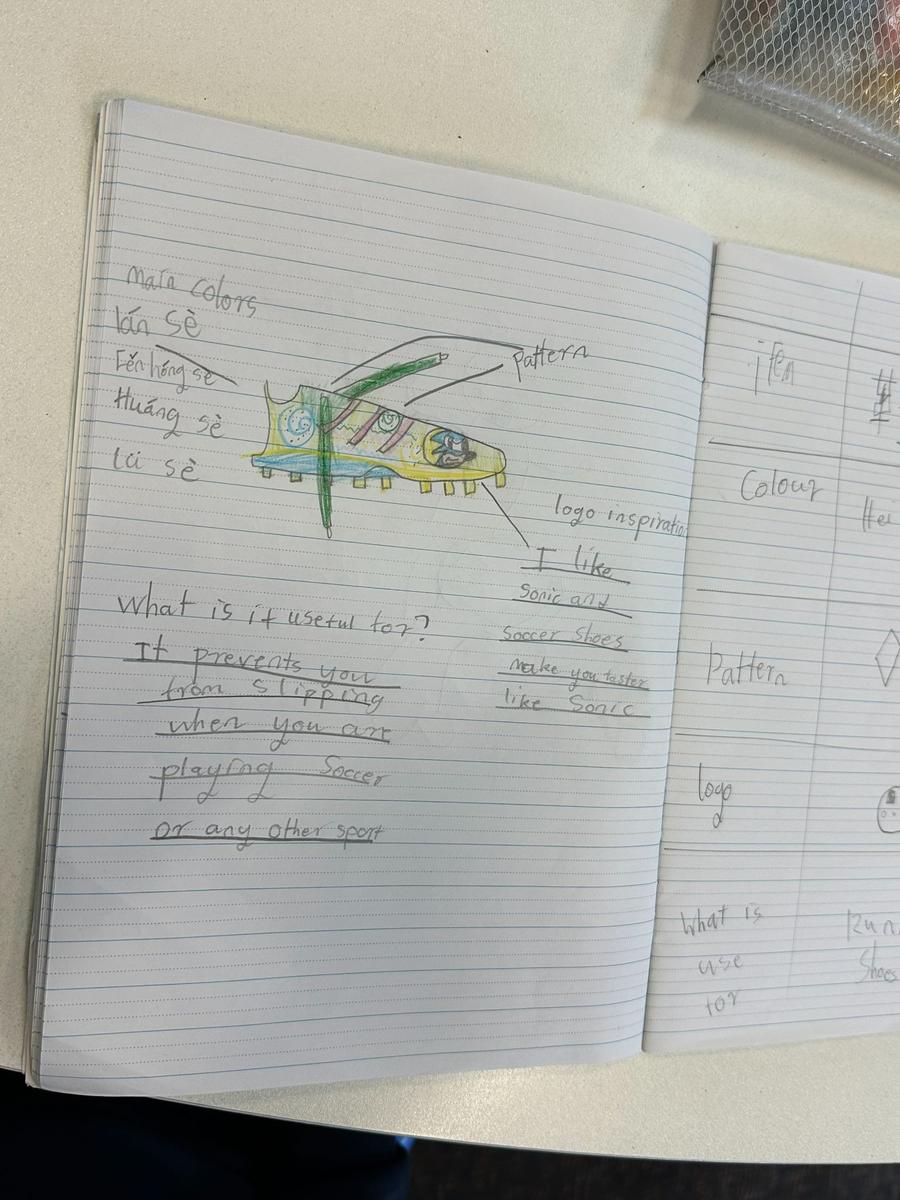 main colors
lán sè
Fěn hóng sè
Huáng sè
lǜ sè
Pattern
logo inspiration
I like
Sonic and
Soccer Shoes
make you faster
like Sonic
What is it useful for?
It prevents you
from slipping
when you are
playing Soccer
or any other sport
Colour
Hei
Pattern
logo
What is
use
for
Run
Shoes